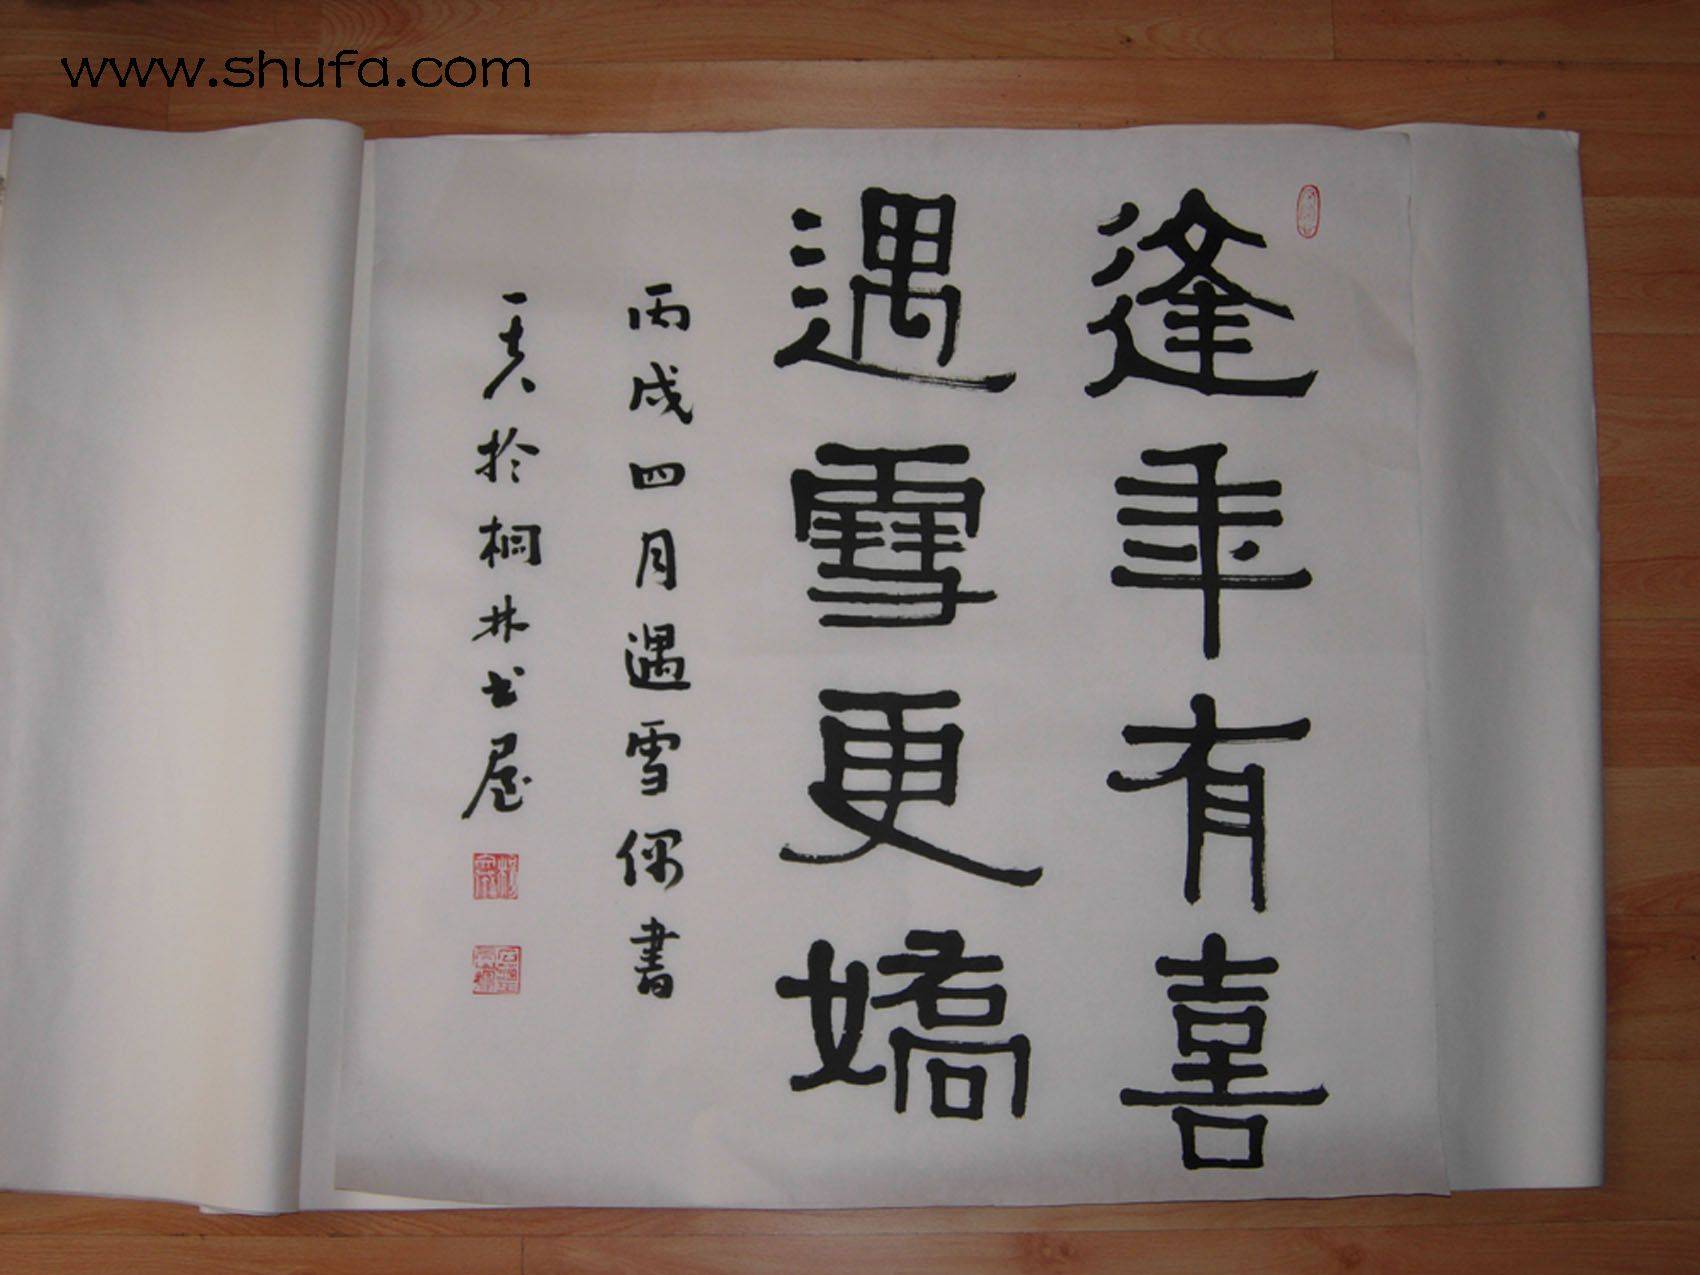 www.shufa.com
逢年有喜
遇雪更嬌
丙戌四月遇雪偶書
於桐林书屋